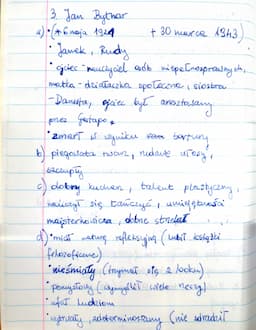 3. Jan Bytnar
a) • (* 6 maja 1921 + 30 marca 1943)
• Janek, Rudy
• ojciec - nauczyciel osób niepełnosprawnych,
matka - działaczka społeczna, siostra
- Danuta, ojciec był aresztowany
przez Gestapo
• zmarł w wyniku tortur
b) piegowata twarz, rudawe włosy,
szczupły
c) dobry kucharz, talent plastyczny,
nauczył się tańczyć, umiejętności
majsterkowicza, dobrze strzelał
d) • miał naturę refleksyjną (lubił książki
filozoficzne)
• nieśmiały (trzymał się z boku)
• pomysłowy (wymyślił wiele rzeczy)
• ufał ludziom
• wytrwały, zdeterminowany (nie zdradził